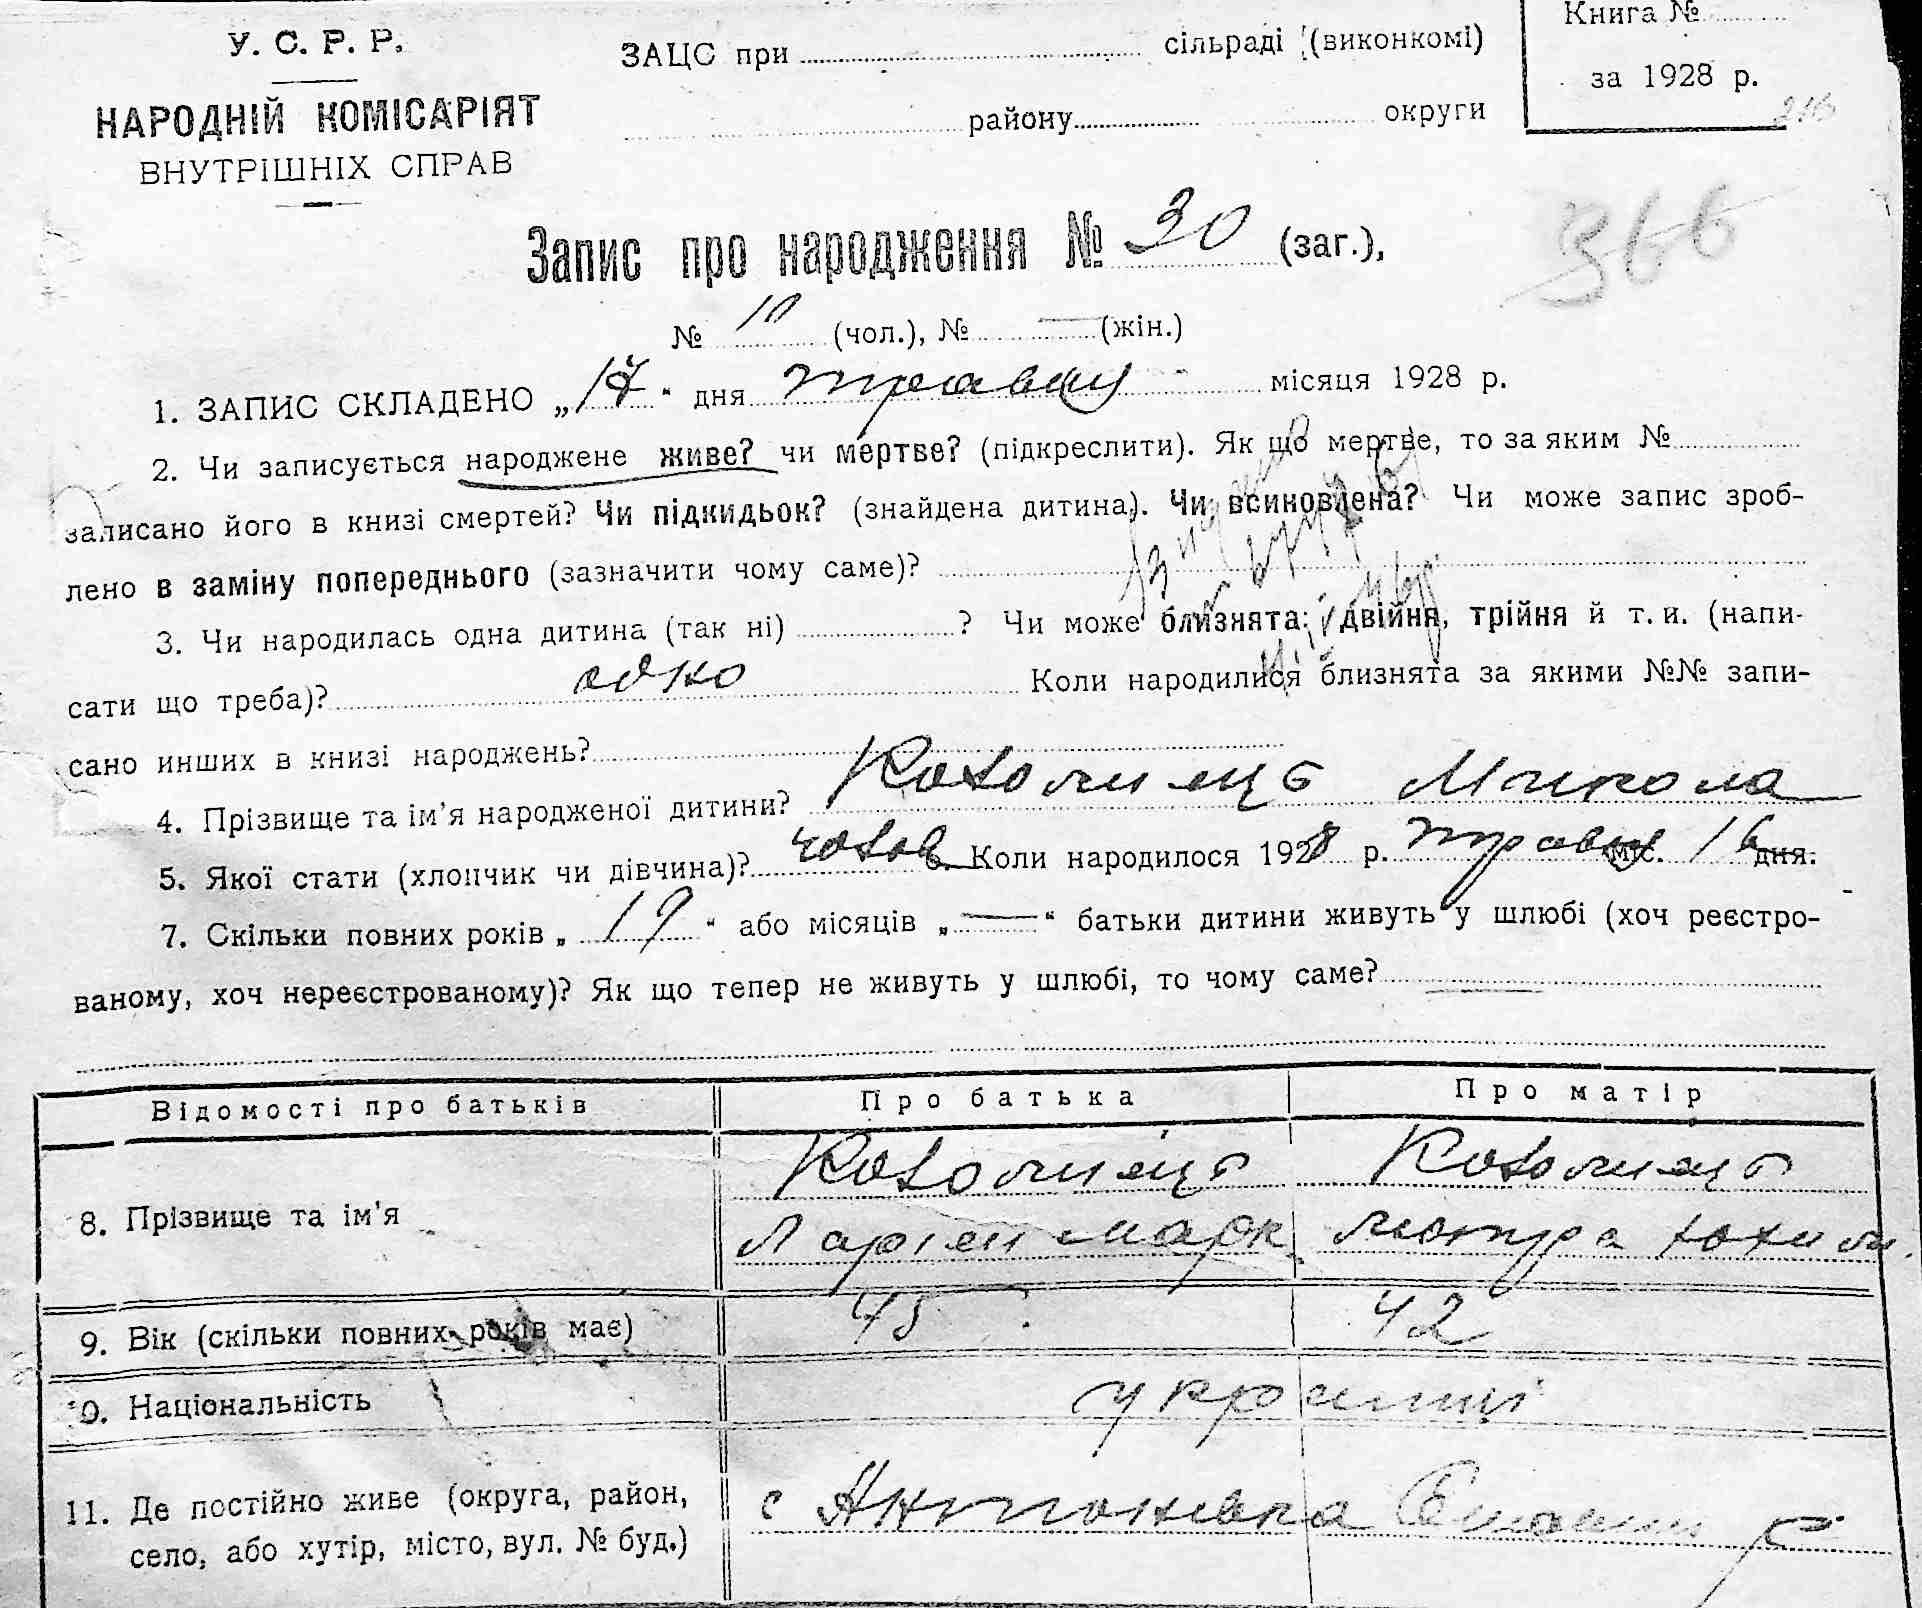 У. С. Р. Р.
НАРОДНІЙ КОМІСАРІЯТ
ВНУТРІШНІХ СПРАВ
ЗАЦС при сільраді (виконкомі)
району округи
Книга №
за 1928 р.
366
Запис про народження № 30 (заг.),
№ 10 (чол.), № — (жін.)
1. ЗАПИС СКЛАДЕНО „17“ дня травня місяця 1928 р.
2. Чи записується народжене живе? чи мертве? (підкреслити). Як що мертве, то за яким №
записано його в книзі смертей? Чи підкидьок? (знайдена дитина). Чи всиновлена? Чи може запис зроб-
лено в заміну попереднього (зазначити чому саме)?
3. Чи народилась одна дитина (так ні) ? Чи може близнята: двійня, трійня й т. и. (напи-
сати що треба)? одно Коли народилися близнята за якими №№ запи-
сано инших в книзі народжень?
4. Прізвище та ім'я народженої дитини? Коломієць Микола
5. Якої стати (хлопчик чи дівчина)? чолов. 6. Коли народилося 1928 р. травня міс. 16 дня.
7. Скільки повних років „19“ або місяців „—“ батьки дитини живуть у шлюбі (хоч реєстро-
ваному, хоч нереєстрованому)? Як що тепер не живуть у шлюбі, то чому саме? —
Відомості про батьків Про батька Про матір
8. Прізвище та ім'я Коломієць Коломієць
Ларіон Марк. Мотря
9. Вік (скільки повних років має) 45 42
10. Національність українці
11. Де постійно живе (округа, район,
село, або хутір, місто, вул. № буд.) с Антонівка